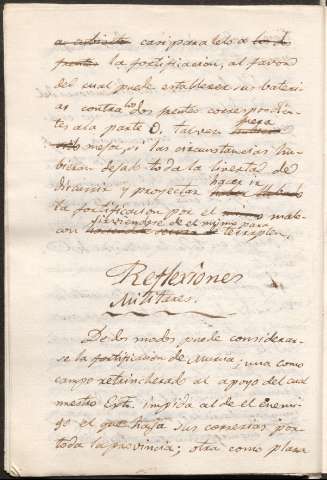 casi paralelo a los
la fortificacion, al favor
del cual puede establecer sus bateri-
as contra los dos frentes correspondien-
tes a la parte O. tal vez fuera
mejor si las circunstancias hu-
bieran dejado toda la libertad de
discurrir y proyectar hacer in
la fortificacion por el male-
con sirviendose de el mismo para
terraplen.
Reflexiones
Militares.
De dos modos puede considerar-
se la fortificacion de Murcia; una como
campo retrincherado al apoyo del cual
nuestro Exto. impida al de el Enemi-
go el que haga sus correrias por
toda la provincia; otra como plaza